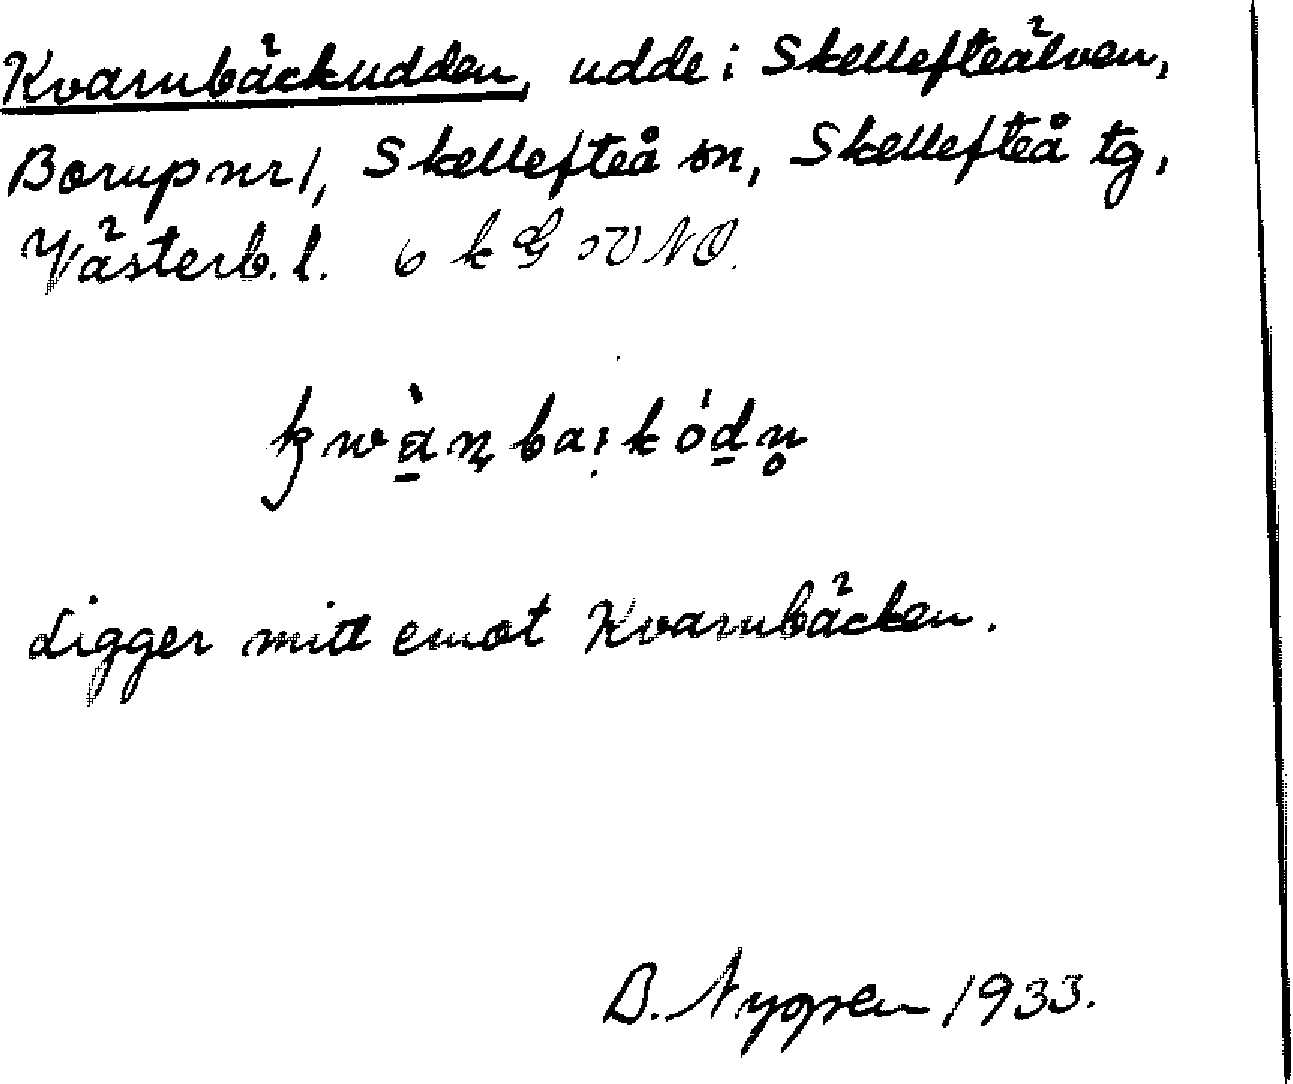 Kvarnbäckudden, udde i Skellefteälven,
Borup nr 1, Skellefteå sn, Skellefteå tg,
Västerb. l. 6 k
Ligger mitt emot Kvarnbäcken.
B. Nygren 1933.